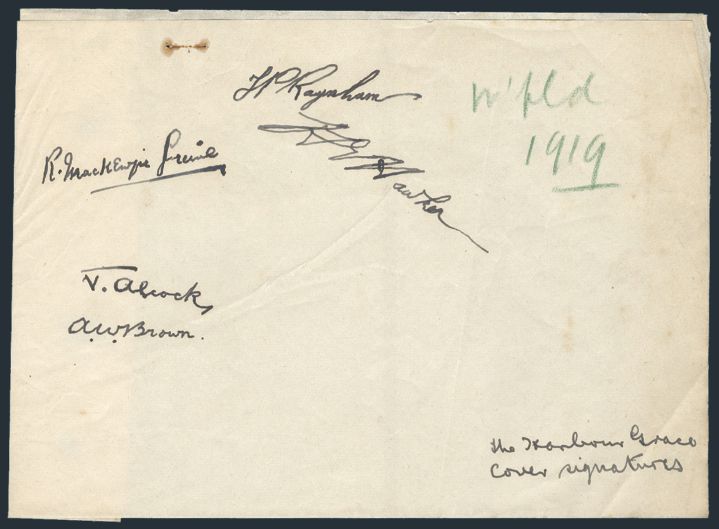 F P Raynham
N'fld
1919
H G Hawker
R. Mackenzie Grieve
J. Alcock
A.W. Brown.
the Harbour Grace
cover signatures